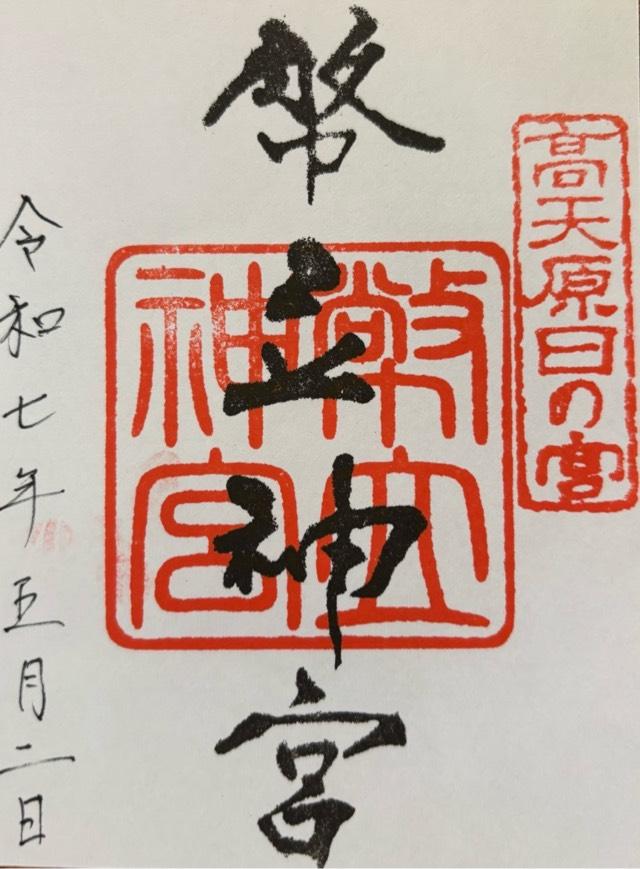 高天原日の宮
幣立神宮
幣立
神宮
令和七年五月二日